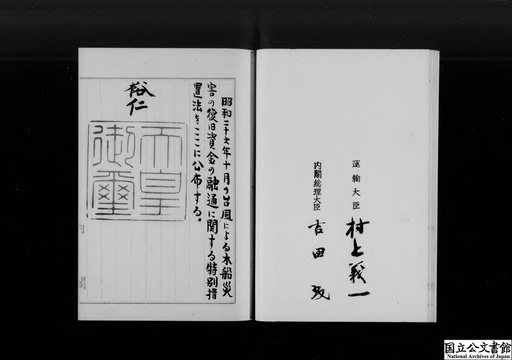 昭和二十六年十月の台風による木船災
害の復旧資金の融通に関する特別措
置法をここに公布する。
裕仁
天皇
御璽
内閣
運輸大臣 村上義一
内閣総理大臣 吉田茂
国立公文書館
National Archives of Japan